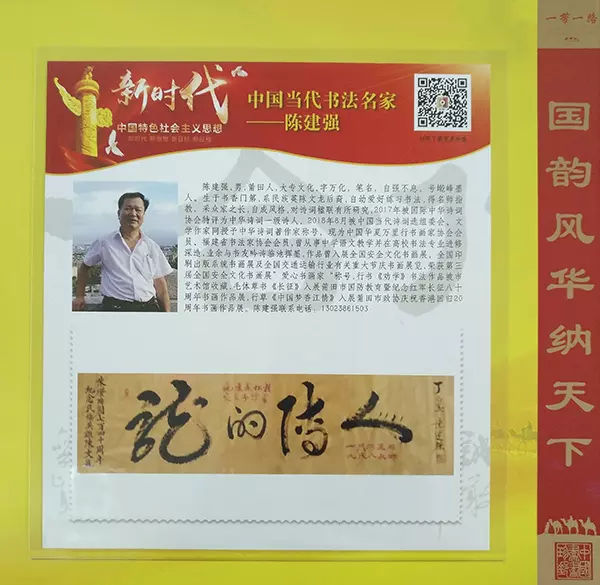 一带一路
新时代
中国特色社会主义思想
中国当代书法名家
——陈建强
陈建强、男、莆田人,大专文化,字万化,笔名,自强不息,号峻峰墨
人。生于书香门第,系民族英陈文龙后裔,自幼爱好练习书法,得名师指
教,采众家之长,自成风格,对诗词楹联有所研究,2017年被国际中华诗词
协会特评为中华诗词一级诗人,2018年8月被中国当代诗词选组委会、文
学作家网授予中华诗词著作家称号,现为中国华夏万里行书画家协会会
员、福建省书法家协会会员,曾从事中学语文教学并在高校书法专业进修
深造,业余与书友吟诗临池挥墨,作品曾入展全国安全文化书画展、全国印
刷出版系统书画展及全国交通运输行业有关重大节庆书画展览,荣获第三
届全国安全文化书画展"爱心书画家"称号,行书《劝学》书法作品被市
艺术馆收藏,毛体草书《长征》入展莆田市国防教育暨纪念红军长征八十
周年书画作品展,行草《中国梦香江情》入展莆田市政协庆祝香港回归20
周年书画作品展。陈建强联系电话:13023861503
人传的龙
国韵风华纳天下